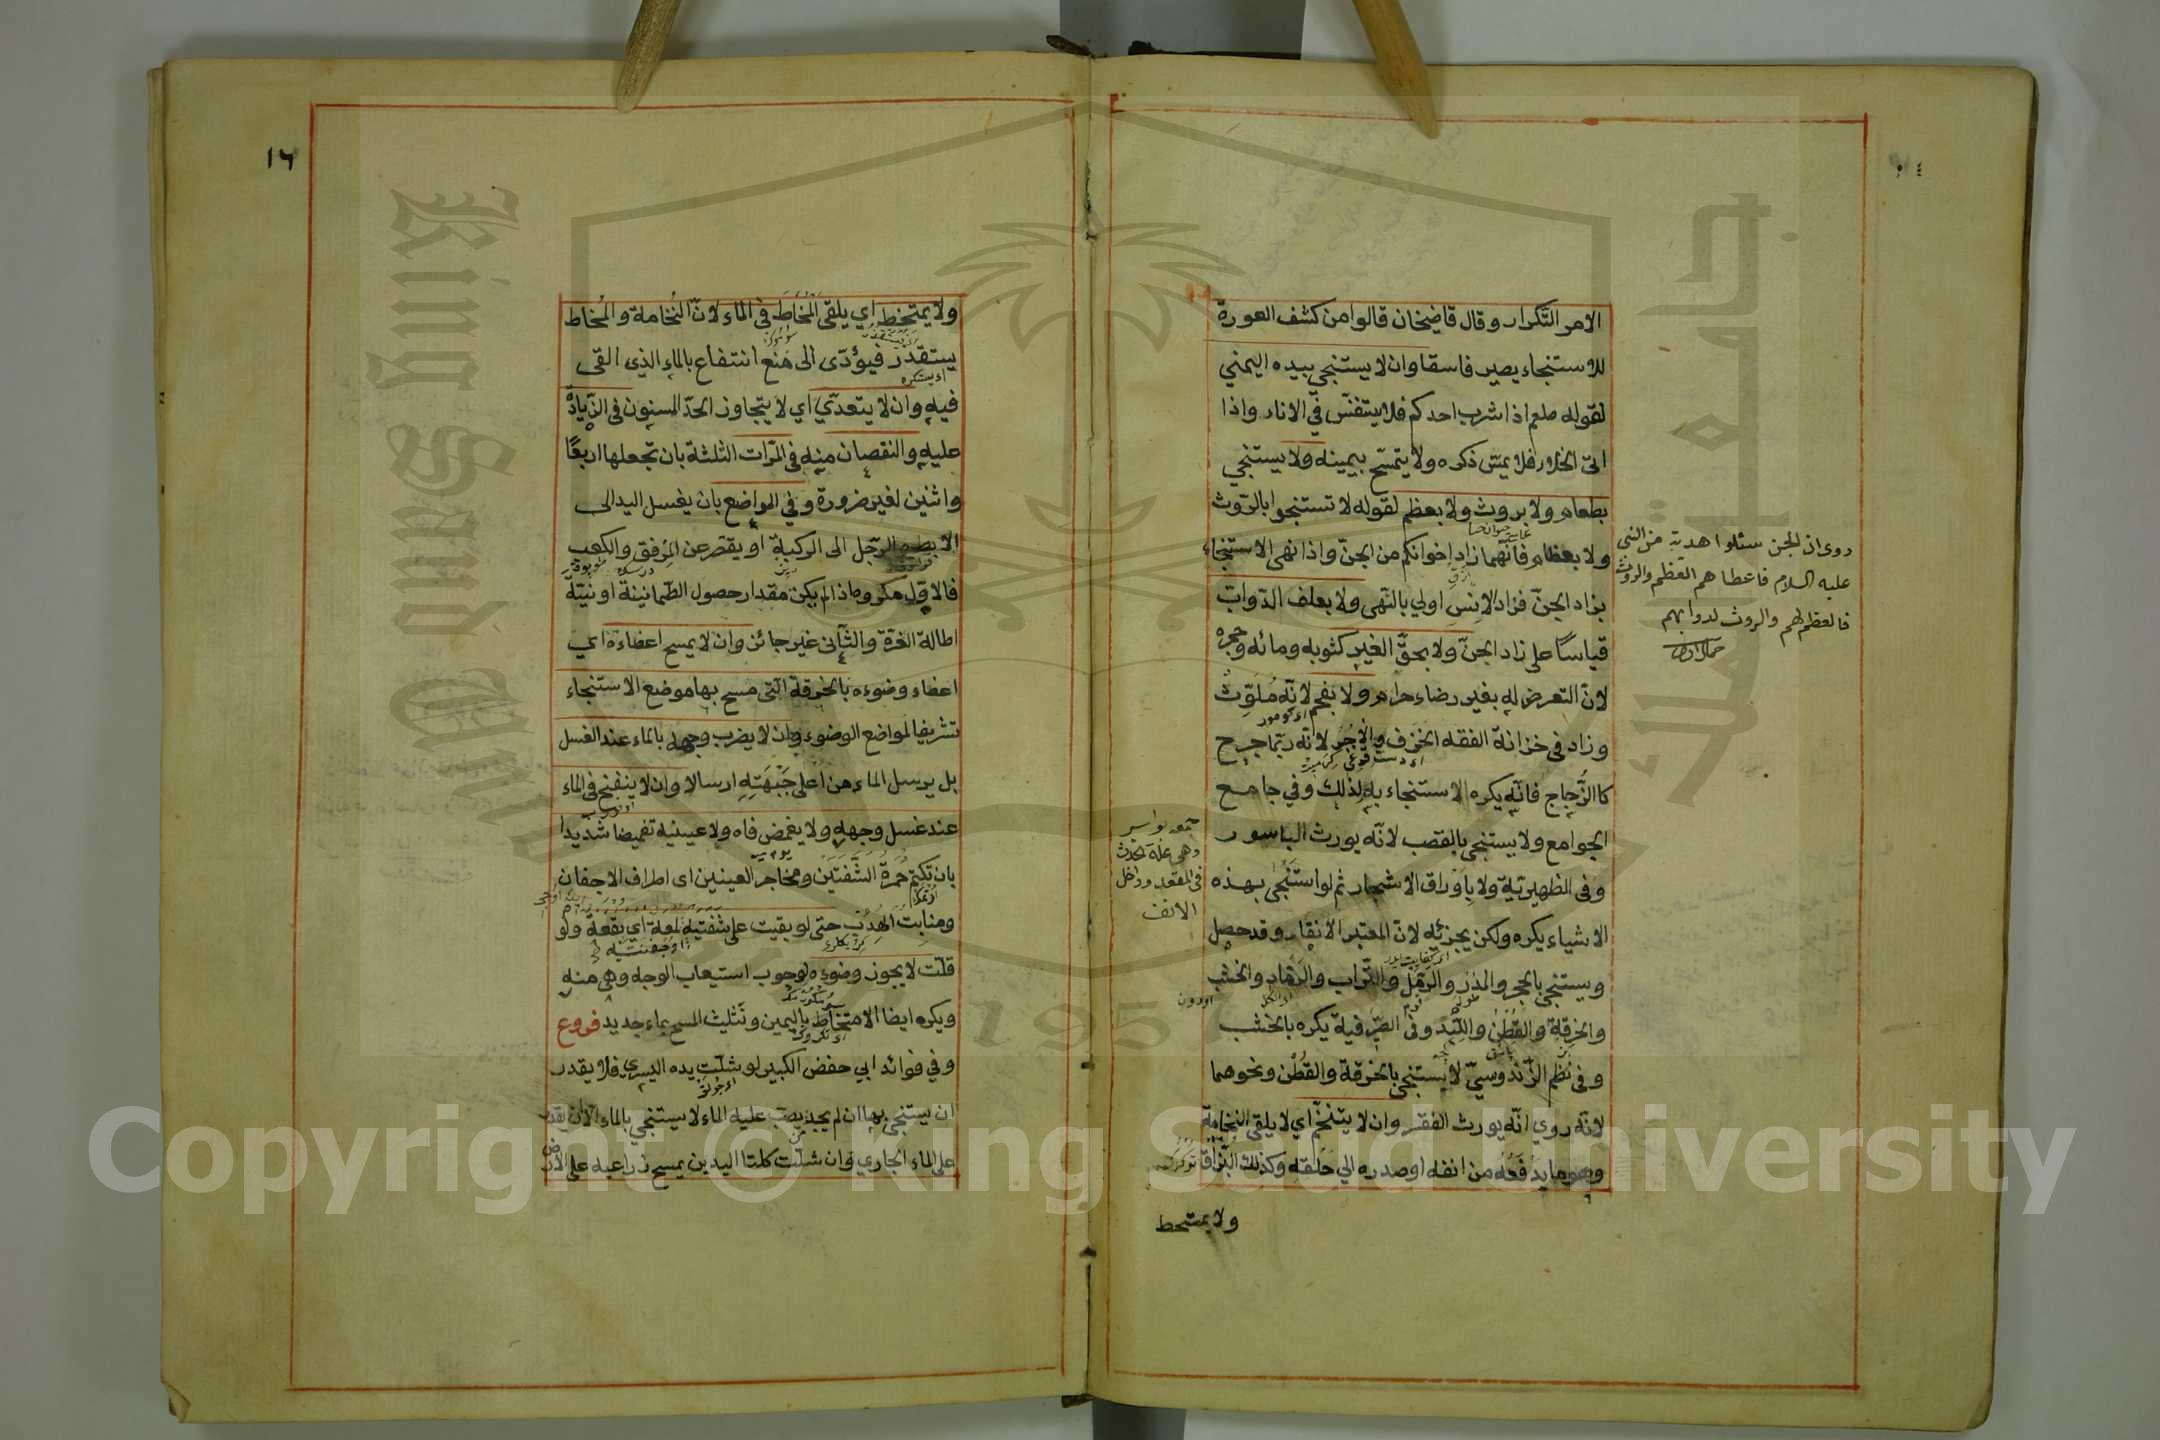 الامر التكرار وقال قاضيخان قالوا من كشف العورة
للاستنجاء يصير فاسقا وان لا يستنجي بيده اليمني
لقوله صلعم اذا شرب احدكم فلا يتنفس في الاناء واذا
اتى الخلاء فلا يمس ذكره ولا يتمسح بيمينه ولا يستنجي
بطعام ولا بروث ولا بعظم لقوله لا تستنجوا بالروث
ولا بعظام فانهما زاد اخوانكم من الجن واذا نهى الاستنجاء
بزاد الجن فزاد الانس اولي بالنهى ولا بعلف الدواب
قياسا على زاد الجن ولا بحق الغير كثوبه ومائه وحجره
لان التعرض له بغير رضاء حرام ولا بفحم لانه ملوث
وزاد في خزانة الفقه الخزف والاجر لانه ربما جرح
كالزجاج فانه يكره الاستنجاء به لذلك وفي جامع
الجوامع ولا يستنجي بالقصب لانه يورث الباسور
وفى الظهيرية ولا باوراق الاشجار ثم لو استنجى بهذه
الاشياء يكره ولكن يجزئه لان المعتبر الانقاء وقد حصل
ويستنجي بالحجر والمدر والرمل والتراب والرماد والخشب
والخرقة والقطن واللبد وفى الصيرفية يكره بالخشب
وفى نظم الزندوسي لا يستنجي بالخرقة والقطن ونحوهما
لانه روي انه يورث الفقر وان لا يتنخم اي لا يلقى النخامة
وهو ما يدفعه من انفه او صدره الي حلقه وكذلك البزاق
ولا يمتخط
روى ان الجن سئلوا هدية من النبى
عليه السلام فاعطاهم العظم والروث
فالعظم لهم والروث لدوابهم
جمعه بواسير
وهي علة تحدث
في المقعد وداخل
الانف
١٦
ولا يمتخط اي يلقى المخاط في الماء لان النخامة والمخاط
يستقذر فيؤدى الى منع انتفاع بالماء الذي القى
فيه وان لا يتعدي اي لا يتجاوز الحد المسنون في الزيادة
عليه والنقصان منه في المرات الثلثة بان تجعلها اربعا
واثنين لغير ضرورة وفي المواضع بان يغسل اليد الى
الابط والرجل الى الركبة او يقتصر عن المرفق والكعب
فالاول مكروه اذا لم يكن مقدار حصول الطمانينة او نيته
اطالة الغرة والثاني غير جائز وان لا يمسح اعضاءه اي
اعضاء وضوءه بالخرقة التي مسح بها موضع الاستنجاء
تشريفا لمواضع الوضوء وان لا يضرب وجهه بالماء عند الغسل
بل يرسل الماء من اعلى جبهته ارسالا وان لا ينفخ في الماء
عند غسل وجهه ولا يغمض فاه ولا عينيه تغميضا شديدا
بان تكتم حمرة الشفتين ومحاجر العينين اى اطراف الاجفان
ومنابت الهدب حتى لو بقيت على شفتيه لمعة اي بقعة ولو
قلت لا يجوز وضوءه لوجوب استيعاب الوجه وهى منه
ويكره ايضا الامتخاط باليمين وتثليث المسح بماء جديد فروع
وفي فوائد ابي حفص الكبير لو شلت يده اليسرى فلا يقدر
ان يستنجي بها ان لم يجد يصب عليه الماء لا يستنجي بالماء الا ان يقدر
على الماء الجاري وان شلت كلتا اليدين يمسح ذراعيه على الارض
Copyright © King Saud University
King Saud University
جامعة الملك سعود
1957